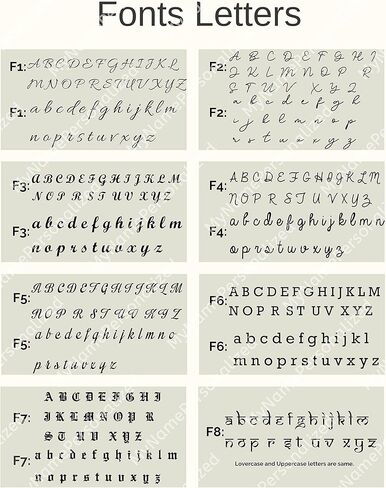 Fonts Letters
F1: A B C D E F G H I J K L
M N O P Q R S T U V X Y Z
F1: a b c d e f g h i j k l m
n o p r s t u v x y z
F2: A B C D E F G H I
J K L M N O P R
S T U V X Y Z
F2: a b c d e f g h
i j k l m n o p
r s t u v x y z
F3: A B C D E F G H I J K L M
N O P R S T U V X Y Z
F3: a b c d e f g h i j k l m
n o p r s t u v x y z
F4: A B C D E F G H I J K L M
N O P R S T U V X Y Z
F4: a b c d e f g h i j k l m n
o p r s t u v x y z
F5: A B C D E F G H I J K L M
N O P R S T U V X Y Z
F5: a b c d e f g h i j k l m n o
p r s t u v x y z
F6: A B C D E F G H I J K L M
N O P R S T U V X Y Z
F6: a b c d e f g h i j k l
m n o p r s t u v x y z
F7: A B C D E F G H I
J K L M N O P R
S T U V X Y Z
F7: a b c d e f g h i j k l m
n o p r s t u v x y z
F8: a b c d e f g h i j k l m
n o p r s t u v x y z
Lovercase and Uppercase letters are same.